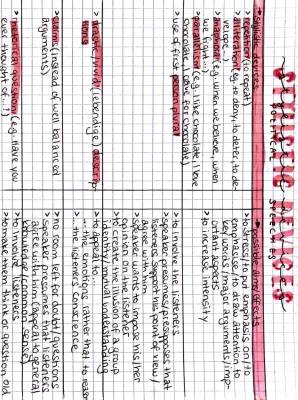 STYLISTIC DEVICES
political speeches
> stylistic devices
> repetition (to repeat)
> alliteration (e.g. to deny, to deter, to de-
velope)
> anaphora (e.g. when we believe, when
we fight ...)
> parallelism (e.g. I like chocolate, I love
chocolate, I crave for chocolate)
> use of first person plural
> drastic/vivid (lebendige) descrip-
tions
> claims (instead of well balanced
arguments)
> rhetorical questions (e.g. Have you
ever thought of ...?)
> possible aims/effects
> to stress/to put emphasis on/to
emphasise/to draw attention to
key words/message/arguments/imp-
ortant aspects
> to increase intensity
> to involve the listeners
> speaker presumes/presupposes that
listeners support his point of view/
agree with him
> speaker wants to impose his/her
opinion on the listener
> to create the illusion of a group
identity/mutual understanding
> to appeal to
... the emotions rather than to reason
... the listeners' conscience
> no room left for doubt/questions
> speaker presumes that listeners
agree with him (appeal to general
knowledge/common sense)
> to involve listeners
> to make them think or question old